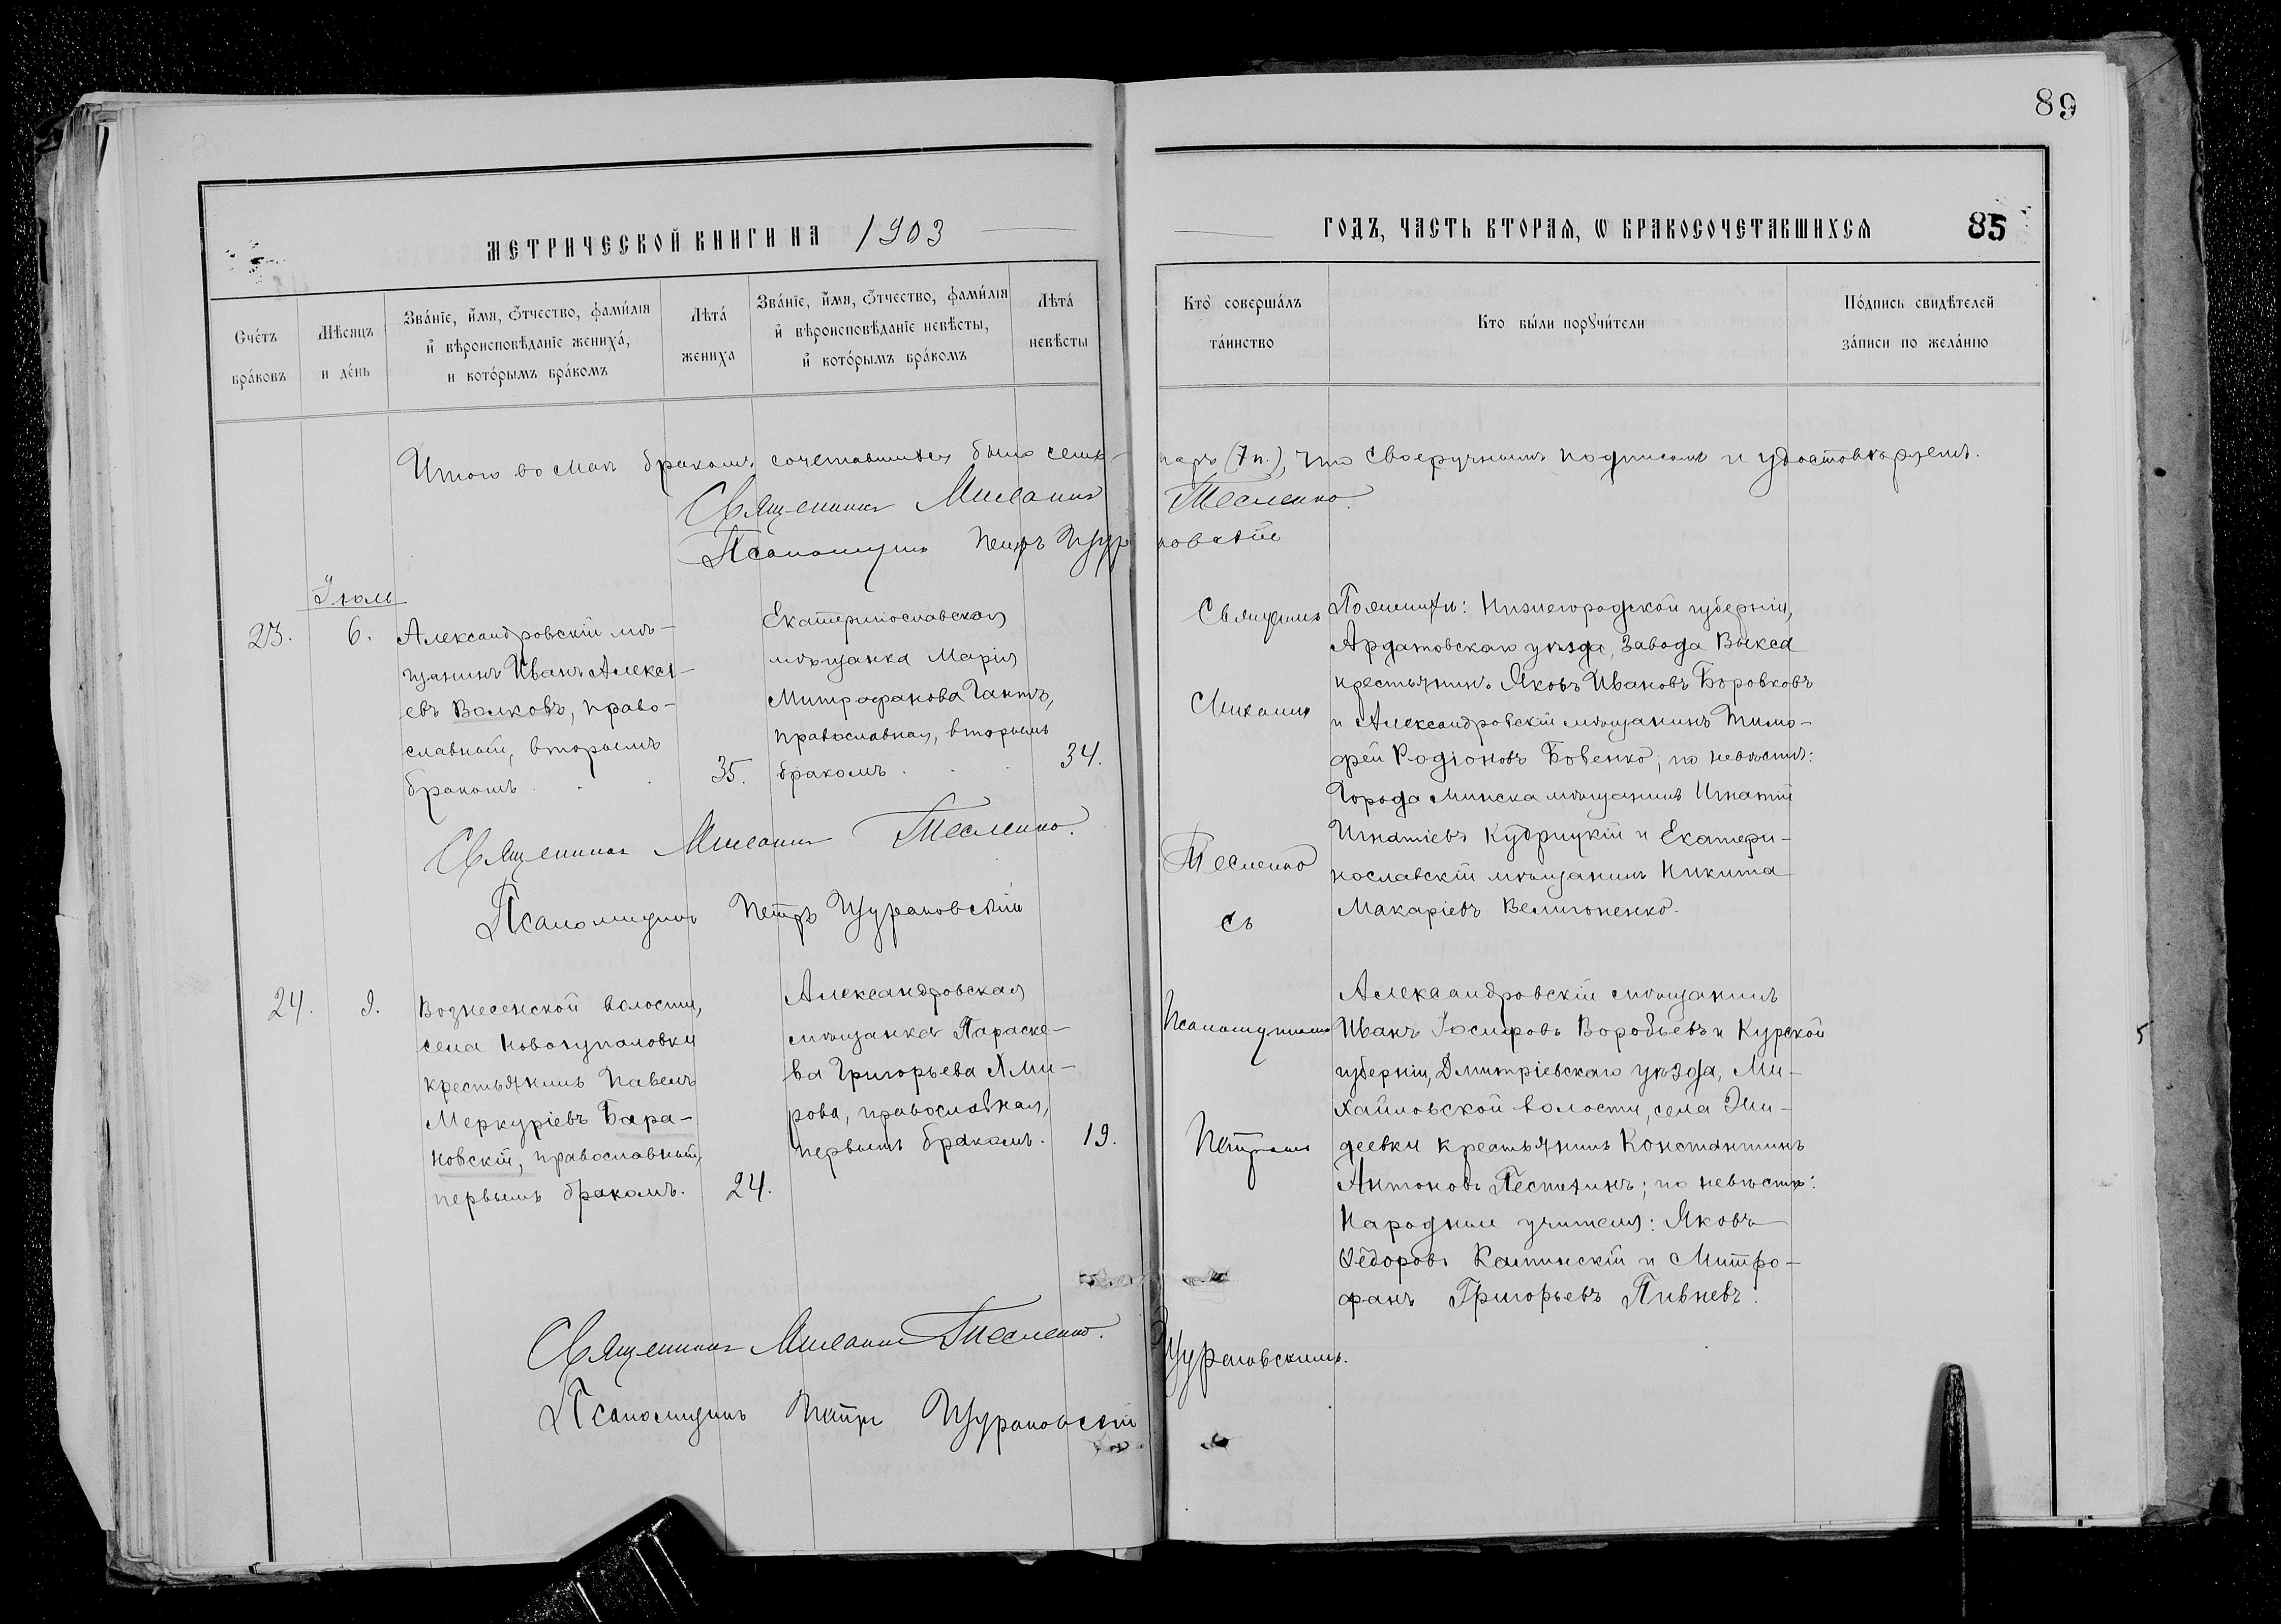 89
МЕТРИЧЕСКОЙ КНИГИ НА 1903
ГОДЪ, ЧАСТЬ ВТОРАЯ, Ѡ БРАКОСОЧЕТАВШИХСЯ 85
Счетъ браковъ
Мѣсяцъ и день
Званіе, имя, ѿчество, фамилія
и вѣроисповѣданіе жениха,
и которымъ бракомъ
Лѣта жениха
Званіе, имя, ѿчество, фамилія
и вѣроисповѣданіе невѣсты,
и которымъ бракомъ
Лѣта невѣсты
Кто совершалъ таинство
Кто были поручители
Подпись свидѣтелей
записи по желанію
Итого во Маѣ бракомъ сочетавшихся было семь паръ (7 п.), что своеручнымъ подписомъ и удостовѣряемъ.
Священникъ Михаилъ Тесленко.
Псаломщикъ Петръ Щурановскій
Іюль
23.
6.
Александровскій мѣ-
щанинъ Иванъ Алексѣ-
евъ Волковъ, право-
славный, вторымъ
бракомъ
35.
Екатеринославская
мѣщанка Марія
Митрофанова Гантъ,
православная, вторымъ
бракомъ
34.
Священникъ Михаилъ Тесленко.
Псаломщикъ Петръ Щурановскій
Священникъ
Михаилъ
Тесленко
съ
Псаломщикомъ
Петромъ
Щурановскимъ.
По женихѣ: Нижегородской губерніи,
Ардатовскаго уѣзда, Завода Выкса
крестьянинъ Яковъ Ивановъ Боровковъ
и Александровскій мѣщанинъ Тимо-
фей Родіоновъ Бовенко; по невѣстѣ:
Города Минска мѣщанинъ Игнатій
Игнатіевъ Кудрицкій и Екатери-
нославскій мѣщанинъ Никита
Макаріевъ Велигоненко.
24.
9.
Вознесенской волости,
села Новогупаловки
крестьянинъ Павелъ
Меркуріевъ Бара-
новскій, православный,
первымъ бракомъ.
24.
Александровская
мѣщанка Параске-
ва Григорьева Хми-
рова, православная,
первымъ бракомъ.
19.
Александровскій мѣщанинъ
Иванъ Іосифовъ Воробьевъ и Курской
губерніи, Дмитріевскаго уѣзда, Ми-
хайловской волости, села Эми-
деевки крестьянинъ Константинъ
Антоновъ Пестихинъ; по невѣстѣ:
Народные учителя: Яковъ
Ѳедоровъ Калинскій и Митро-
фанъ Григорьевъ Пивневъ.
Священникъ Михаилъ Тесленко.
Псаломщикъ Петръ Щурановскій
5